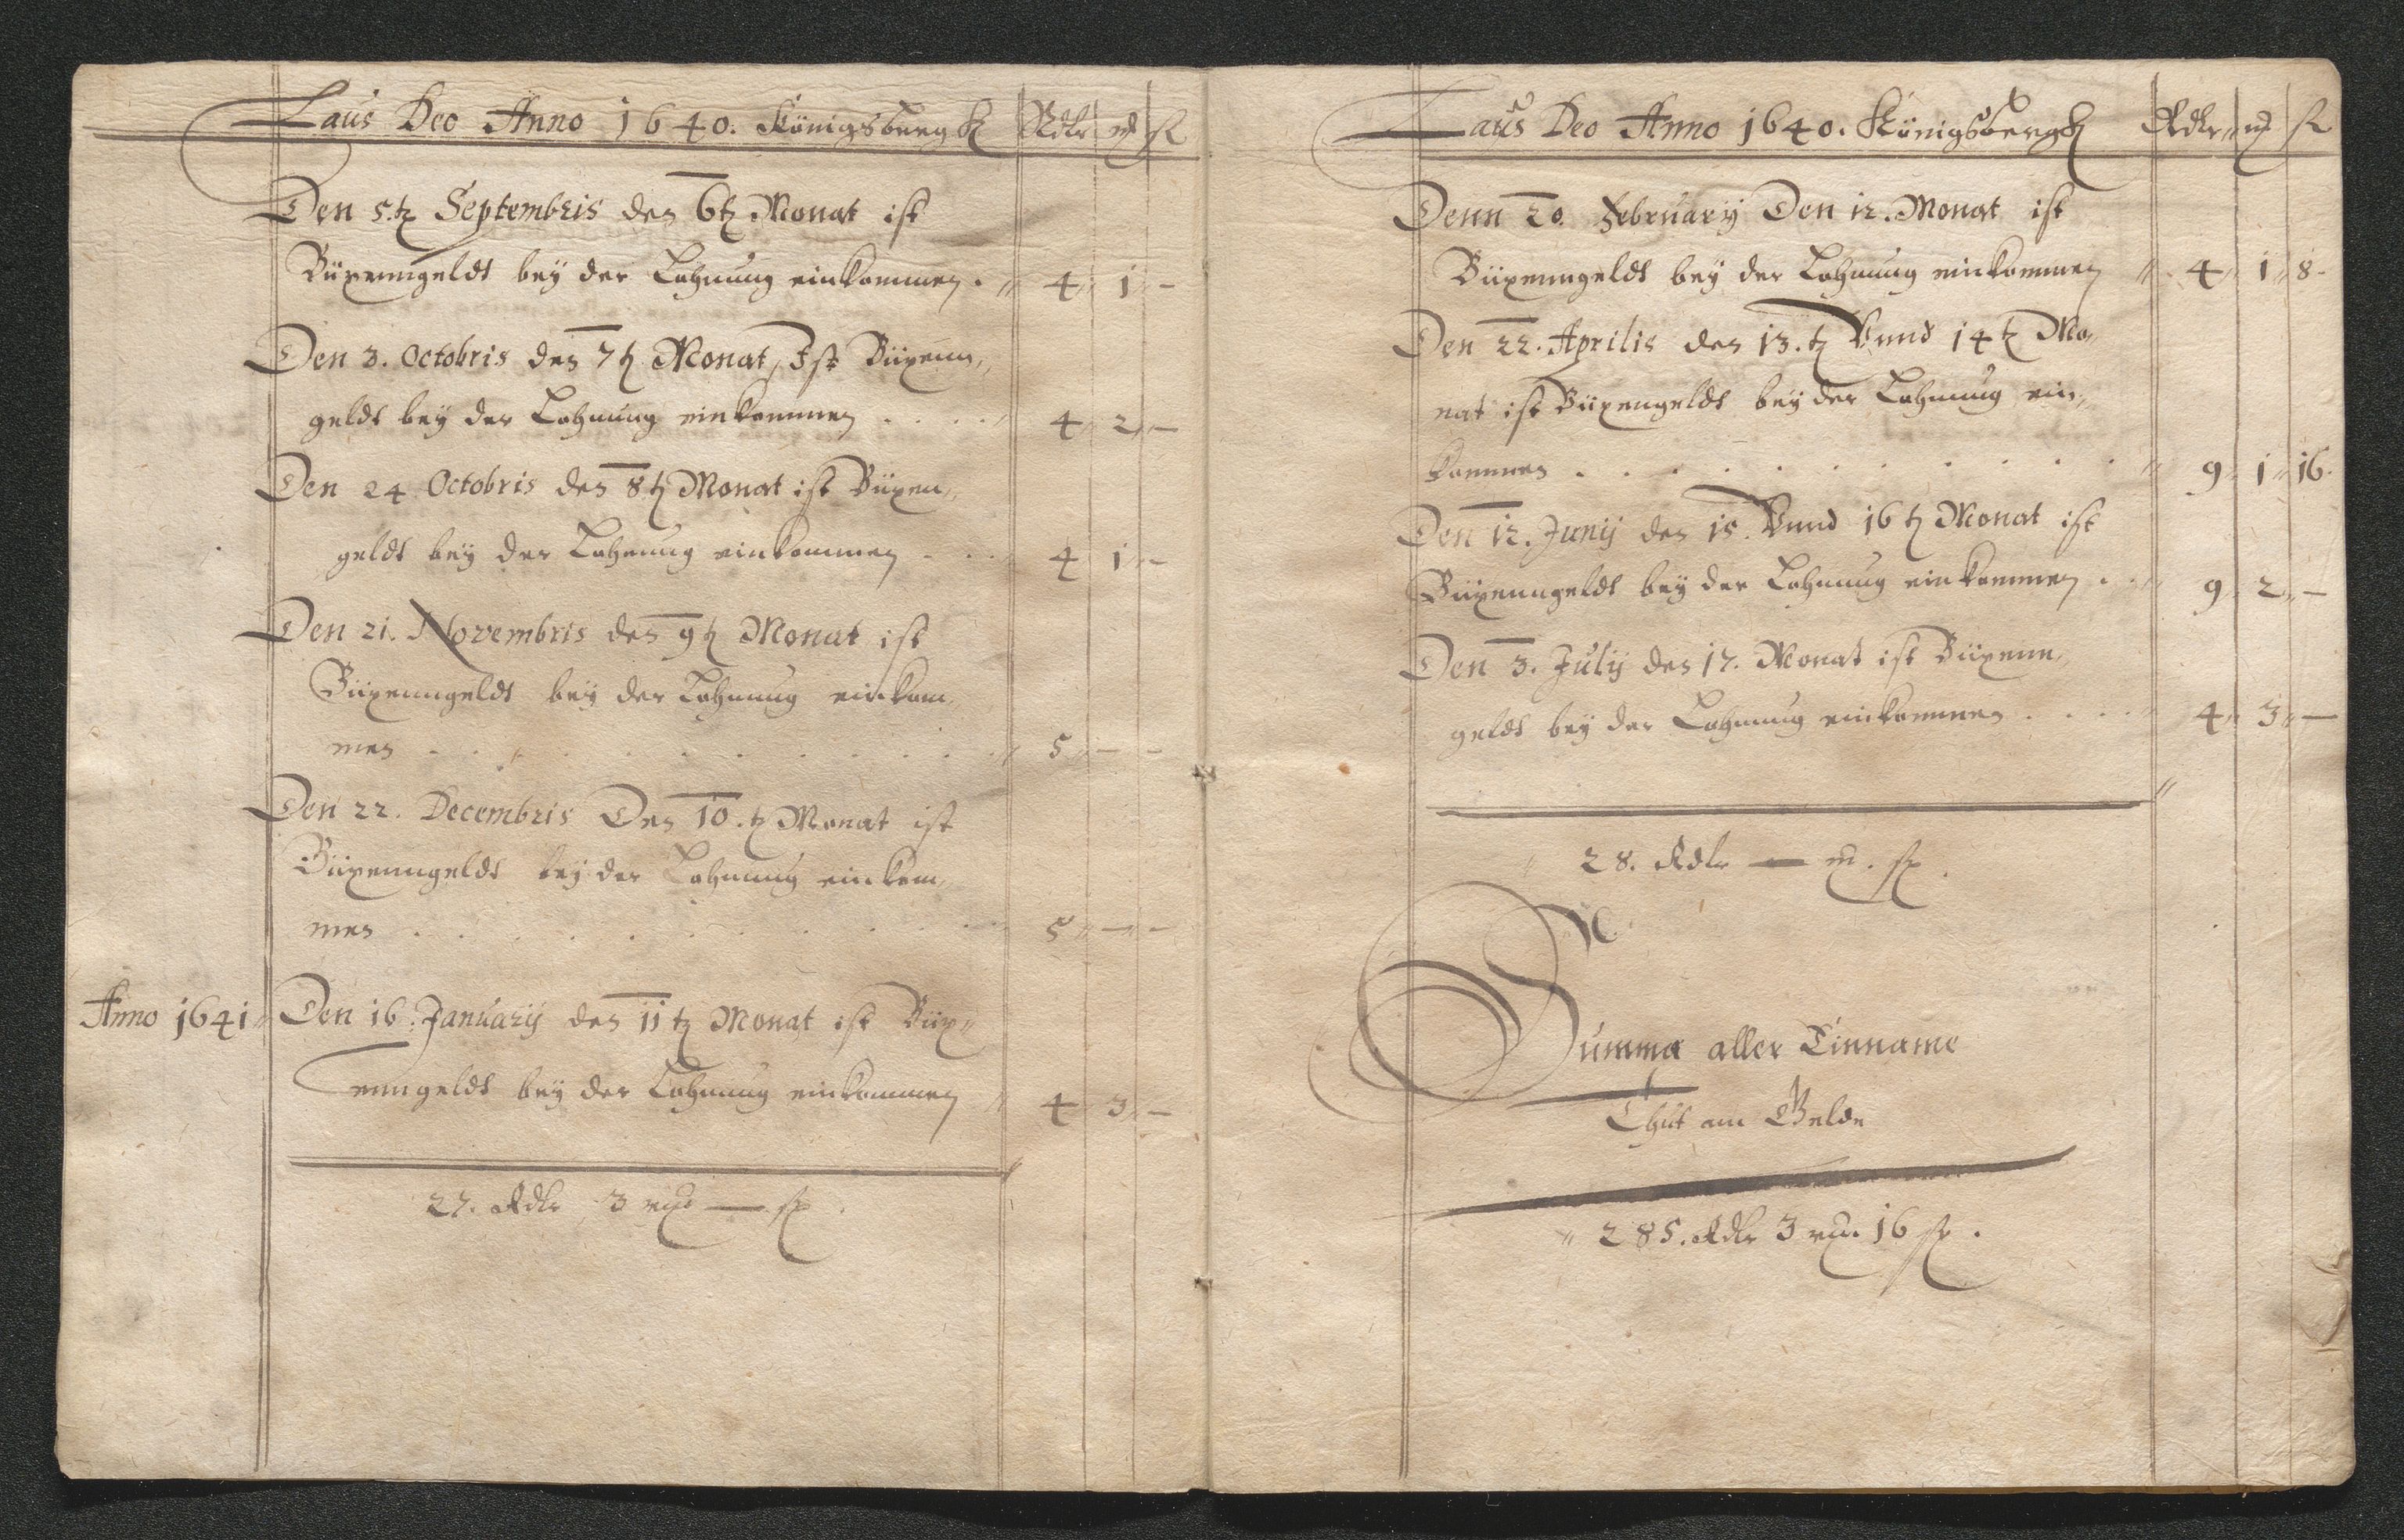 Laus Deo Anno 1640. Königsbergk Rdlr m ß
Den 5.tz Septembris des 6tz Monat ist
Büxenngeldt bey der Lohnung einkommen. 4 1 -
Den 3. Octobris des 7tz Monat, Ist Büxenn„
geldt bey der Lohnung einkommen . . . . 4 2 -
Den 24 Octobris des 8tz Monat ist Büxen„
geldt bey der Lohnung einkommen . . . 4 1 -
Den 21. Novembris des 9tz Monat ist
Büxenngeldt bey der Lohnung einkom„
men . . . . . . . . . . 5 - -
Den 22. Decembris Des 10.tz Monat ist
Büxenngeldt bey der Lohnung einkom„
men . . . . . . . . . . 5 - -
Anno 1641 Den 16. January des 11tz Monat ist Büx„
enngeldt bey der Lohnung einkommen 4 3 -
27. Rdlr 3 m — ß
Laus Deo Anno 1640. Königsbergk Rdlr m ß
Denn 20. February Den 12. Monat ist
Büxenngeldt bey der Lohnung einkommen 4 1 8
Den 22. Aprilis des 13.tz Vnnd 14tz Mo„
nat ist Büxengeldt bey der Lohnung ein„
kommen . . . . . . . . . . 9 1 16
Den 12. Junij des 15. Vnnd 16tz Monat ist
Büxenngeldt bey der Lohnung einkommen . . 9 2 -
Den 3. July des 17. Monat ist Büxenn„
geldt bey der Lohnung einkommen . . . . 4 3 -
28. Rdlr — m. ß.
Summa aller Einname
Thut am Gelde
285. Rdlr 3 m. 16 ß.